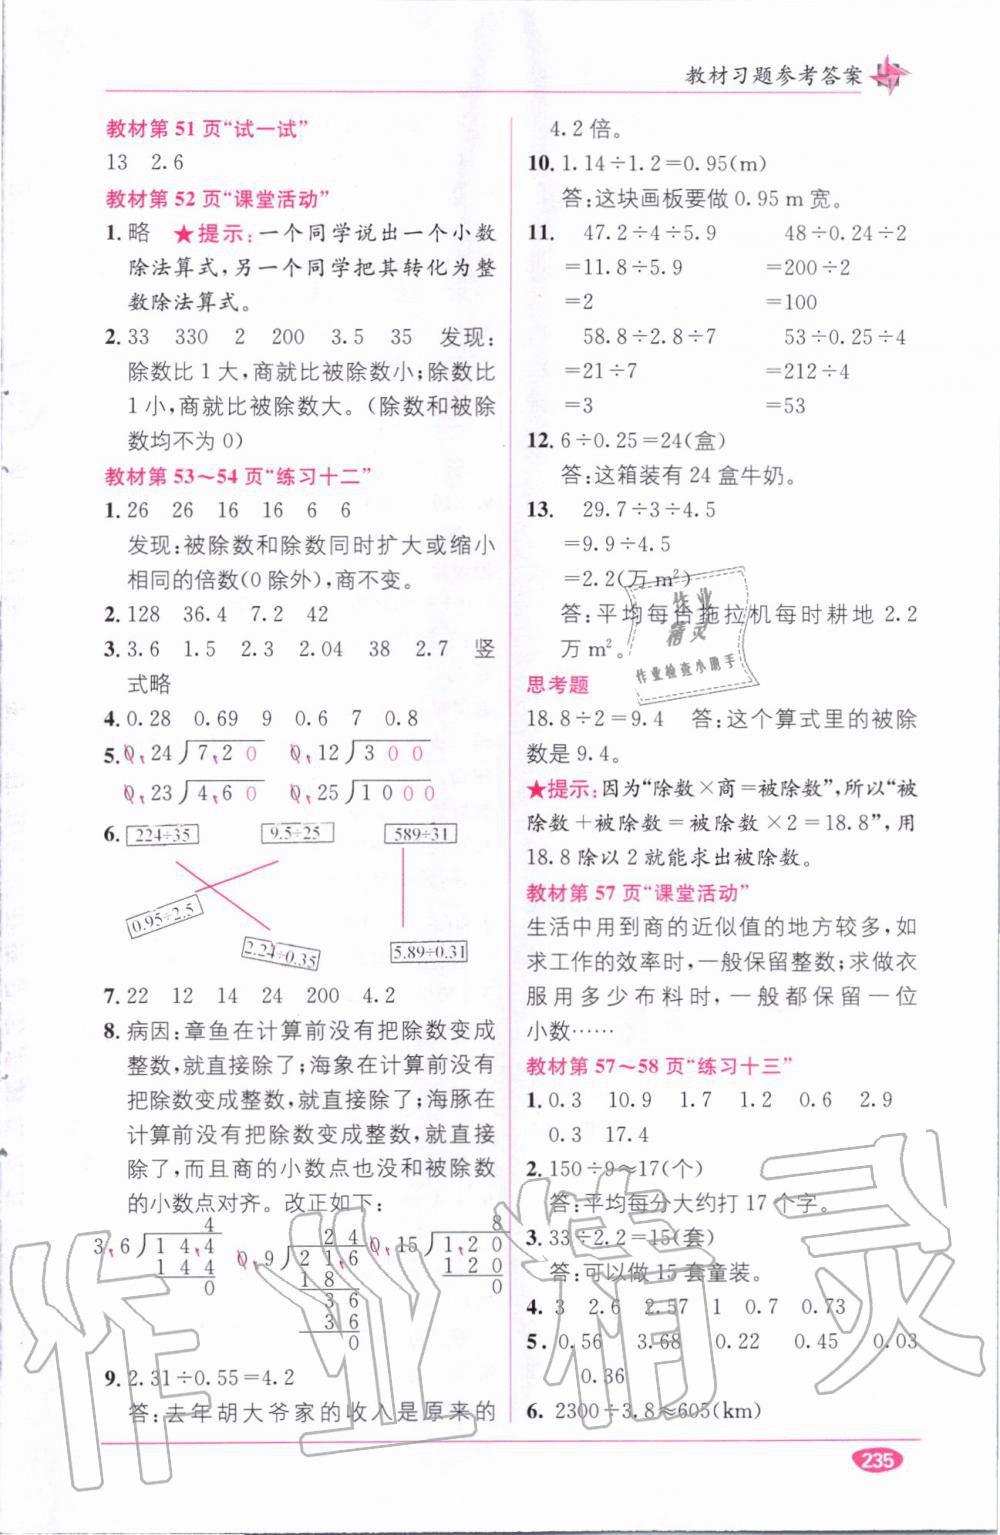 教材习题参考答案
教材第 51 页“试一试”
13 2.6
教材第 52 页“课堂活动”
1. 略 ★提示:一个同学说出一个小数
除法算式,另一个同学把其转化为整
数除法算式。
2. 33 330 2 200 3.5 35 发现:
除数比 1 大,商就比被除数小;除数比
1 小,商就比被除数大。(除数和被除
数均不为 0)
教材第 53~54 页“练习十二”
1. 26 26 16 16 6 6
发现:被除数和除数同时扩大或缩小
相同的倍数(0 除外),商不变。
2. 128 36.4 7.2 42
3. 3.6 1.5 2.3 2.04 38 2.7 竖
式略
4. 0.28 0.69 9 0.6 7 0.8
5. 0.24 7.20 0.12 300
0.23 4.60 0.25 1000
6. 224÷35 9.5÷25 589÷31
0.95÷2.5 2.24÷0.35 5.89÷0.31
7. 22 12 14 24 200 4.2
8. 病因:章鱼在计算前没有把除数变成
整数,就直接除了;海象在计算前没有
把除数变成整数,就直接除了;海豚在
计算前没有把除数变成整数,就直接
除了,而且商的小数点也没和被除数
的小数点对齐。改正如下:
4 2 4 8
3.6 1 4.4 0.9 2 1.6 0.15 1.2 0
1 4 4 1 8 1 2 0
0 3 6 0
3 6
0
9. 2.31÷0.55=4.2
答:去年胡大爷家的收入是原来的
4.2 倍。
10. 1.14÷1.2=0.95(m)
答:这块画板要做 0.95 m 宽。
11. 47.2÷4÷5.9 48÷0.24÷2
=11.8÷5.9 =200÷2
=2 =100
58.8÷2.8÷7 53÷0.25÷4
=21÷7 =212÷4
=3 =53
12. 6÷0.25=24(盒)
答:这箱装有 24 盒牛奶。
13. 29.7÷3÷4.5
=9.9÷4.5
=2.2(万 m²)
答:平均每台拖拉机每时耕地 2.2
万 m²。
作业
精灵
作业检查小助手
思考题
18.8÷2=9.4 答:这个算式里的被除
数是 9.4。
★提示:因为“除数×商=被除数”,所以“被
除数+被除数=被除数×2=18.8”,用
18.8 除以 2 就能求出被除数。
教材第 57 页“课堂活动”
生活中用到商的近似值的地方较多,如
求工作的效率时,一般保留整数;求做衣
服用多少布料时,一般都保留一位
小数……
教材第 57~58 页“练习十三”
1. 0.3 10.9 1.7 1.2 0.6 2.9
0.3 17.4
2. 150÷9≈17(个)
答:平均每分大约打 17 个字。
3. 33÷2.2=15(套)
答:可以做 15 套童装。
4. 3 2.6 2.57 1 0.7 0.73
5. 0.56 3.68 0.22 0.45 0.03
0.36
6. 2300÷3.8≈605(km)
作业精灵
235